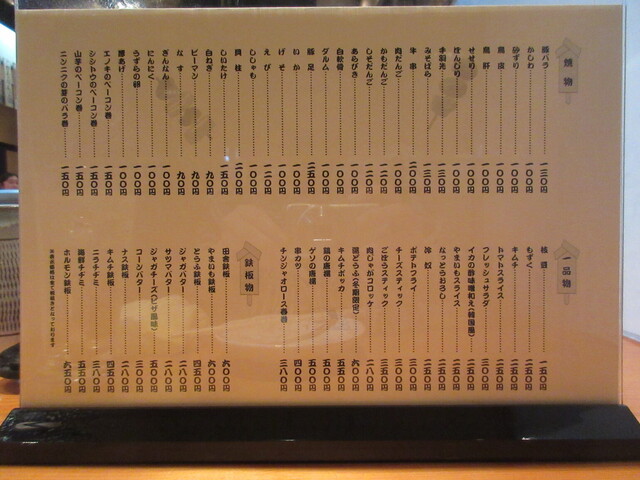 焼物
豚バラ 一三〇円
かしわ 一〇〇円
砂ずり 一〇〇円
鳥皮 一〇〇円
鳥肝 一〇〇円
せせり 一〇〇円
ぼんじり 一〇〇円
手羽先 一三〇円
みそばら 一三〇円
牛串 二〇〇円
肉だんご 一〇〇円
かもだんご 一二〇円
しそだんご 一二〇円
あらびき 一〇〇円
白軟骨 一〇〇円
ダルム 一〇〇円
豚足 二五〇円
いか 一〇〇円
げそ 一〇〇円
えび 一二〇円
ししゃも 一〇〇円
貝柱 二〇〇円
しいたけ 一五〇円
白ねぎ 九〇円
ピーマン 九〇円
なす 九〇円
ぎんなん 一〇〇円
にんにく 一〇〇円
うずらの卵 一〇〇円
厚あげ 一〇〇円
エノキのベーコン巻 一五〇円
シシトウのベーコン巻 一五〇円
山芋のベーコン巻 一五〇円
ニンニクの芽のバラ巻 一五〇円
一品物
枝豆 一五〇円
もずく 二五〇円
キムチ 二五〇円
トマトスライス 二五〇円
フレッシュサラダ 三〇〇円
イカの酢味噌和え(韓国風)
やまいもスライス 二五〇円
なっとうおろし 二五〇円
冷奴 二五〇円
ポテトフライ 三〇〇円
チーズスティック 三〇〇円
ごぼうスティック 三五〇円
肉じゃがコロッケ 二八〇円
湯どうふ(冬期限定) 六〇〇円
キムチポッカ 五五〇円
鶏の唐揚 五〇〇円
ゲソの唐揚 五〇〇円
串カツ 四〇〇円
チンジャオロース春巻 三八〇円
鉄板物
田舎鉄板 六〇〇円
やまいも鉄板 六〇〇円
とうふ鉄板 四五〇円
ジャガバター 二八〇円
サツマバター 二八〇円
ジャガチーズ(ピザ風味) 五〇〇円
コーンバター 三〇〇円
ナス鉄板 二八〇円
キムチ鉄板 四五〇円
ニラチヂミ 三八〇円
海鮮チヂミ 五五〇円
ホルモン鉄板 六五〇円